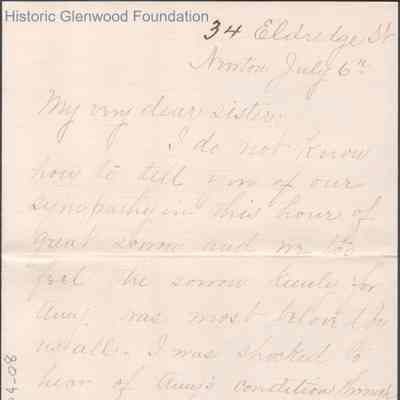 Historic Glenwood Foundation
34 Eldredge St
Newton July 6th
My very dear sister.
I do not know
how to tell you of our
sympathy in this hour of
great sorrow and we too
feel the sorrow keenly for
Amy was most beloved by
us all. I was shocked to
hear of Amy's condition